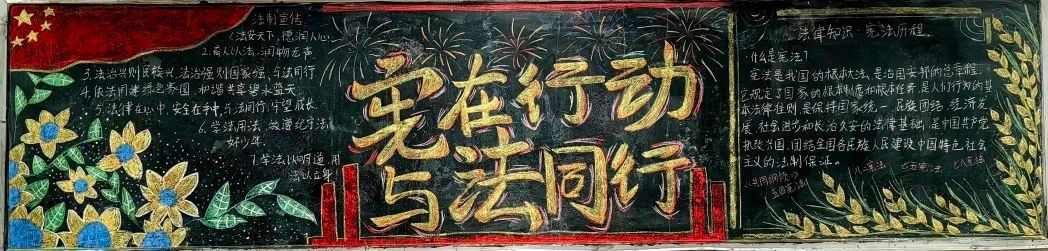 法制宣传
1.法安天下,德润人心
2.奇人以法,润物无声
3.法治兴则民族兴,法治强则国家强,与法同行
4.依法同建绿色家园,和谐共享碧水蓝天
5.法律在心中,安全在手中,与法同行,守望成长
6.学法用法,做遵纪守法
好少年.
7.学法以明道,用
法以立身
宪在行动
与法同行
法律知识·宪法历程
什么是宪法?
宪法是我国的根本大法,是治国安邦的总章程,
它规定了国家的根本制度和根本任务,是人们行为的基
本法律准则,是保持国家统一、民族团结、经济发
展、社会进步和长治久安的法律基础,是中国共产党
执政兴国、团结全国各民族人民建设中国特色社会
主义的法制保证。
《共同纲领》
五四宪法
八二宪法
七五宪法
七八宪法